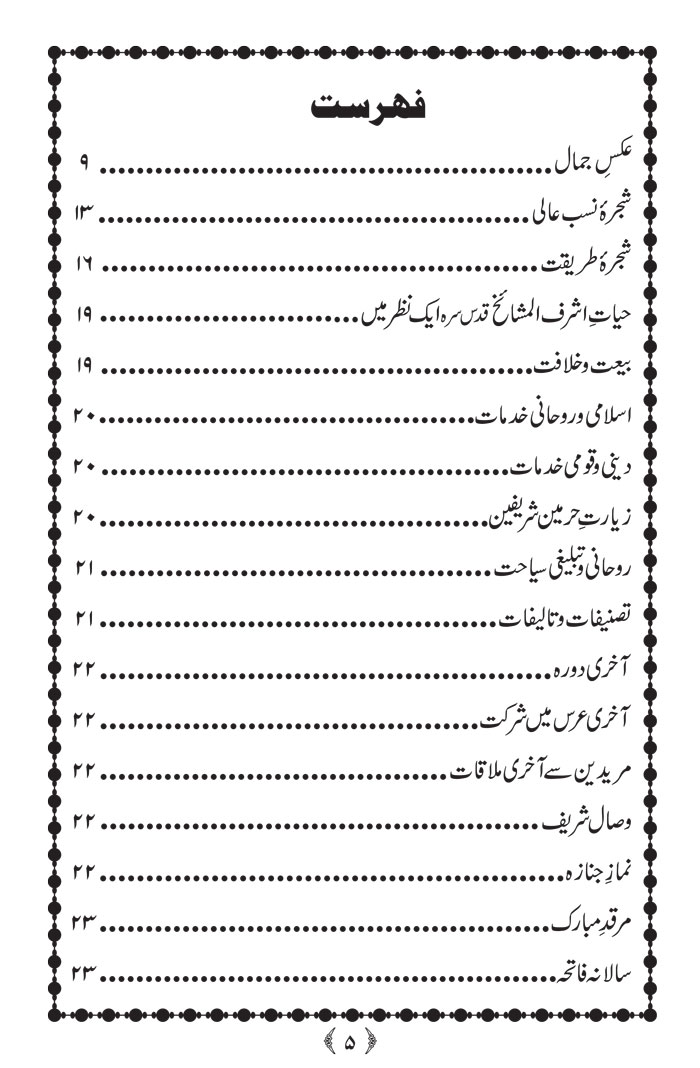 فہرست
عکسِ جمال .................................................. ۹
شجرۂ نسب عالی .................................................. ۱۳
شجرۂ طریقت .................................................. ۱۶
حیاتِ اشرف المشائخ قدس سرہ ایک نظر میں .............................. ۱۹
بیعت و خلافت .................................................. ۱۹
اسلامی و روحانی خدمات .......................................... ۲۰
دینی و قومی خدمات .............................................. ۲۰
زیارتِ حرمین شریفین ............................................ ۲۰
روحانی و تبلیغی سیاحت .......................................... ۲۱
تصنیفات و تالیفات .............................................. ۲۱
آخری دورہ .................................................. ۲۲
آخری عرس میں شرکت .......................................... ۲۲
مریدین سے آخری ملاقات ........................................ ۲۲
وصال شریف .................................................. ۲۲
نمازِ جنازہ .................................................. ۲۲
مرقدِ مبارک .................................................. ۲۳
سالانہ فاتحہ .................................................. ۲۳
﴿ ۵ ﴾